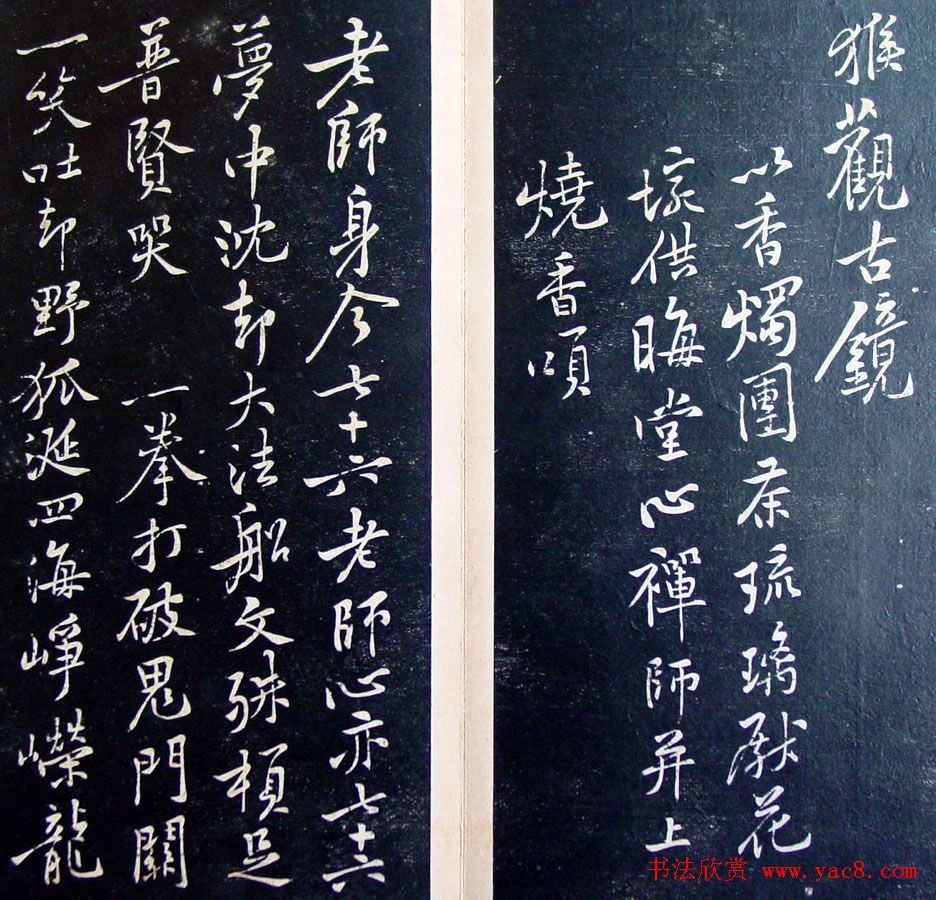 猴觀古鏡
以香燭團茶琉璃獻花
供晦堂心禪師并上
燒香頌
老師身今七十六老師心亦七十六
夢中沈却大法船文殊頓足
普賢哭 一拳打破鬼門關
一笑吐却野狐涎四海崢嶸龍
书法欣赏 www.yac8.com